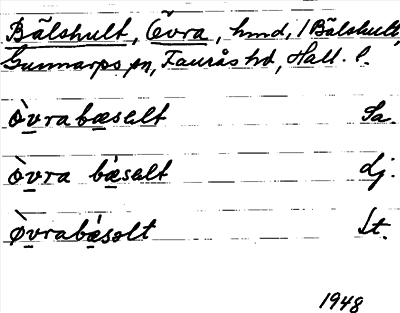 Bälshult, Övra, hmd, / Bälshult,
Gunnarps sn, Faurås hd, Hall. l.
òvrabæselt Sa.
òvra bæ̀selt dj.
òvrabæ̀sølt Lt.
1948